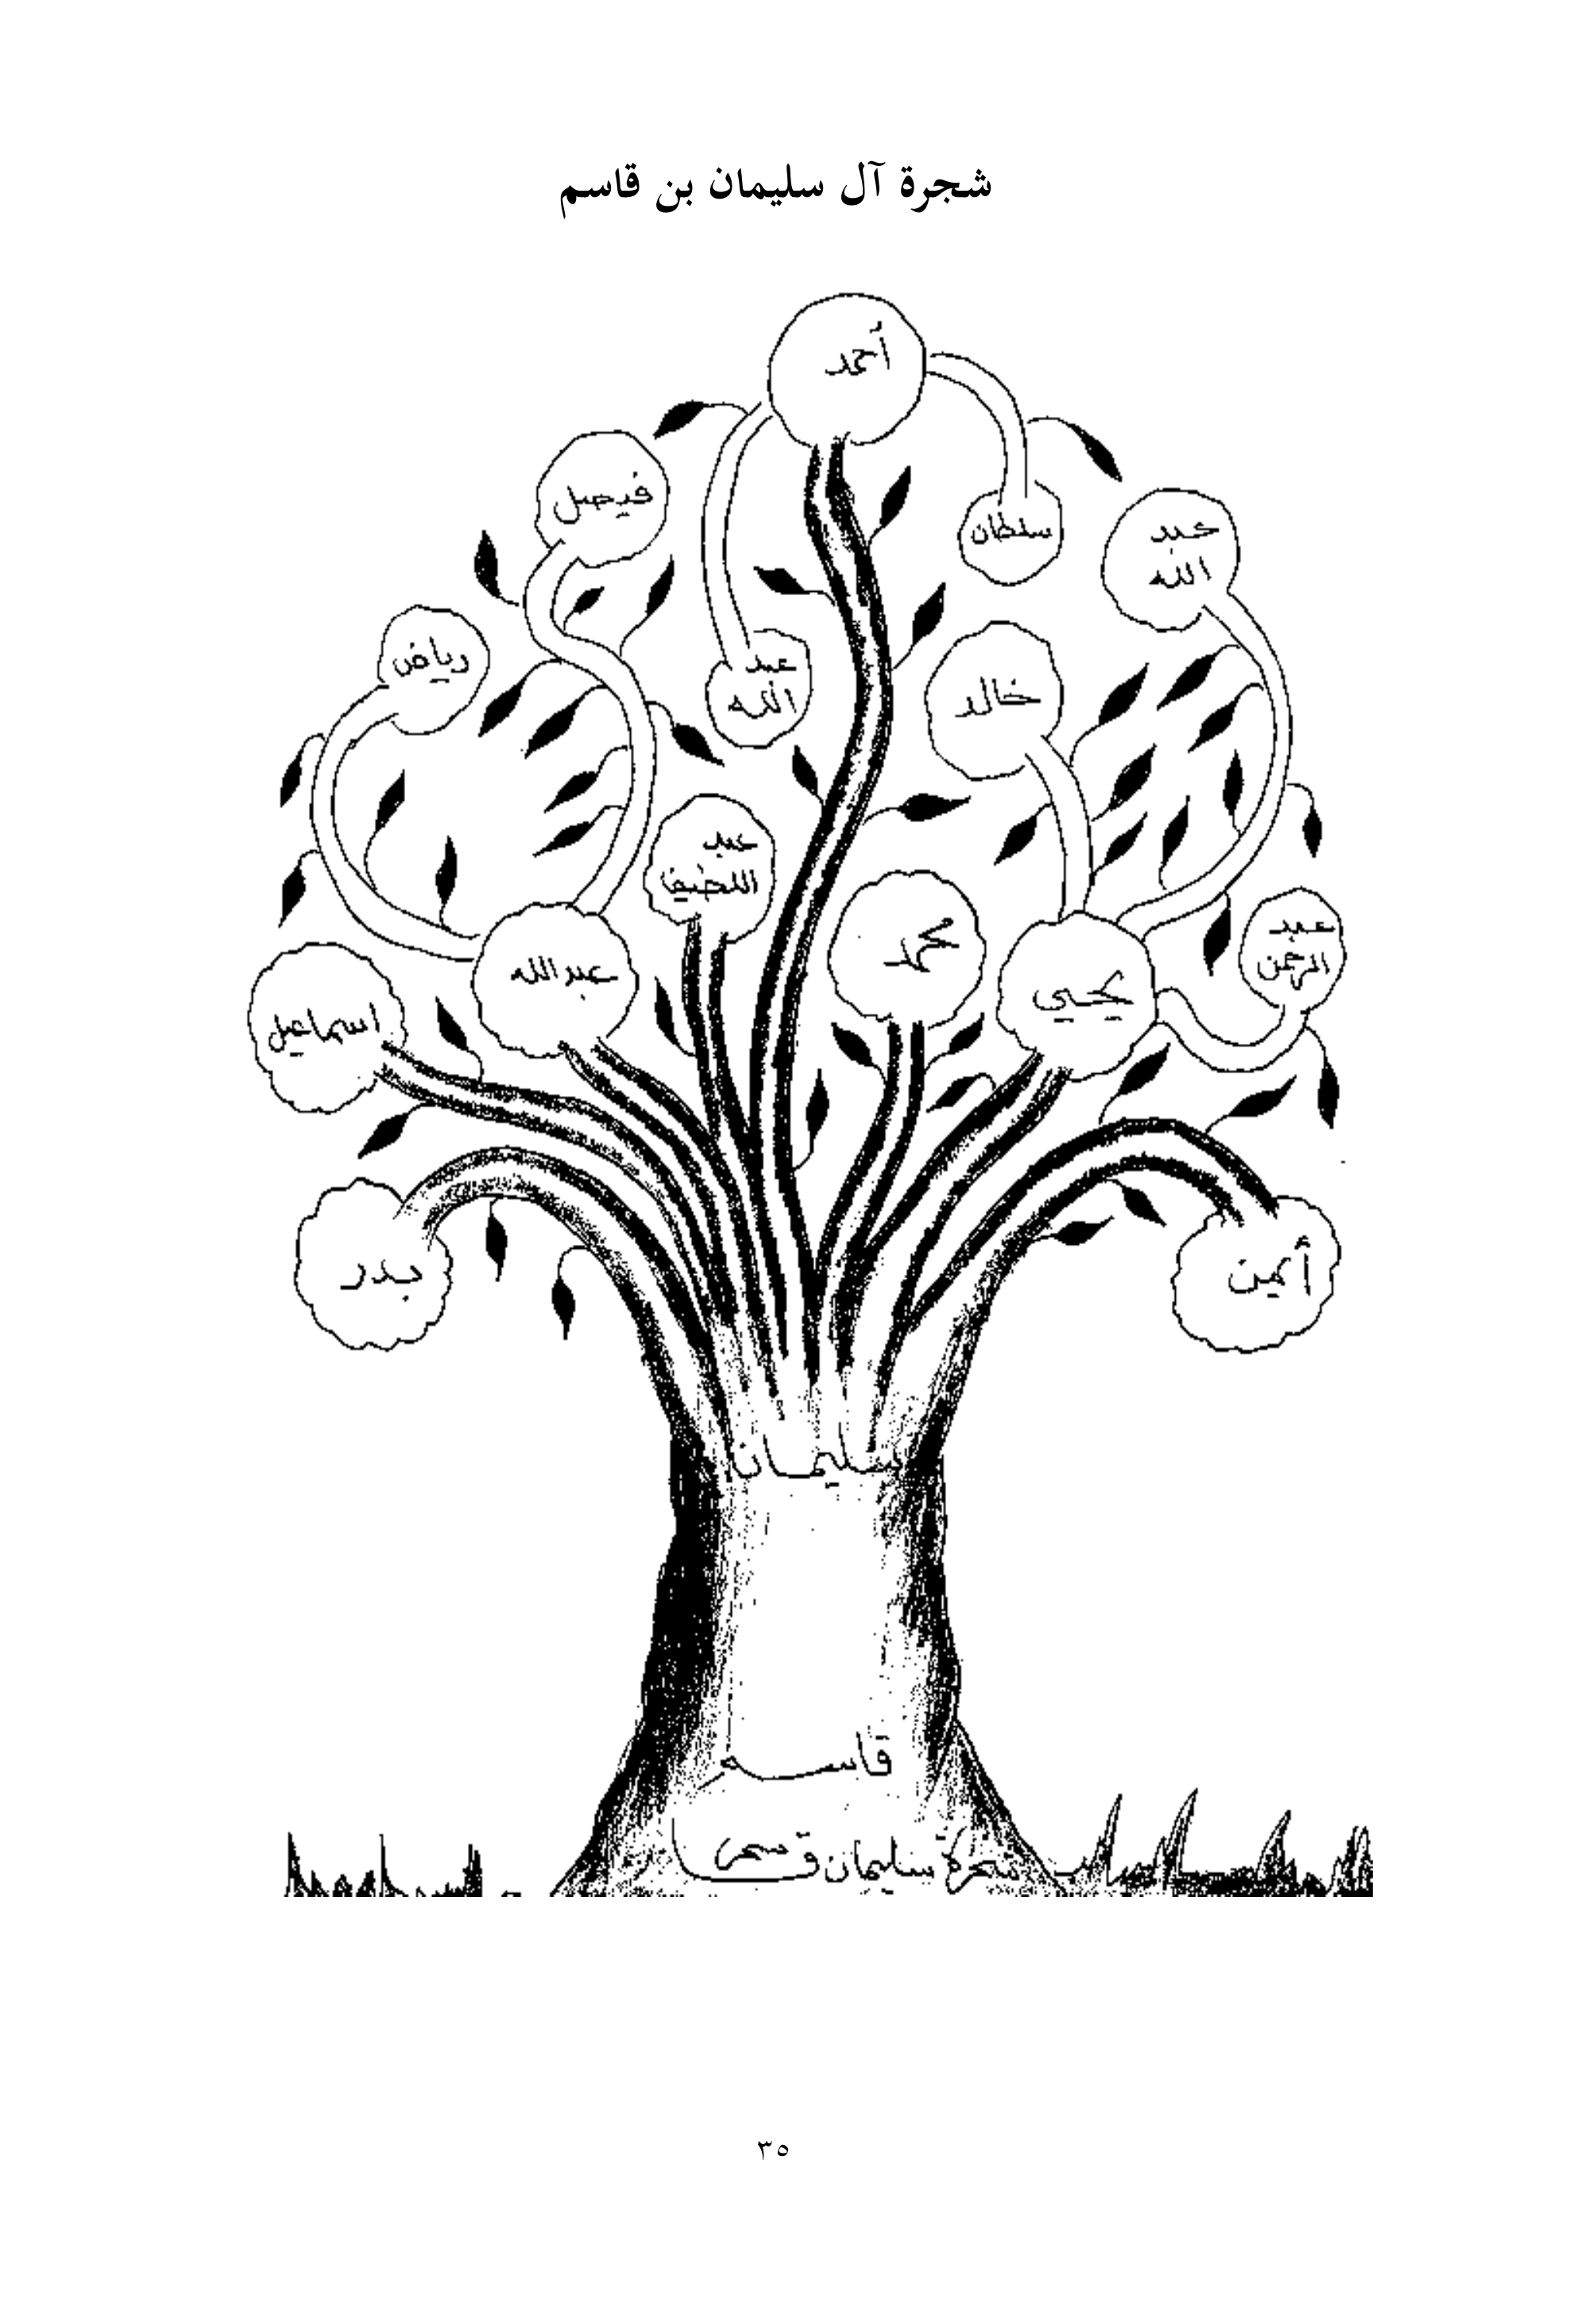 شجرة آل سليمان بن قاسم
أحمد
فيصل
سلطان
عبد
الله
رياض
عبد
الله
خالد
عبد
اللطيف
محمد
عبد
الرحمن
عبدالله
يحيي
اسماعيل
بدر
أيمن
سليمان
قاسم
شجرة سليمان
٣٥